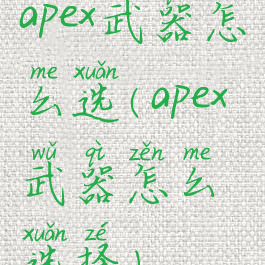 apex武器怎
me xuǎn
么选(apex
wǔ qì zěn me
武器怎么
xuǎn zé
选择)